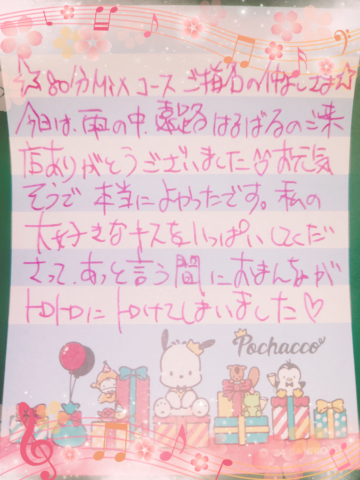 ☆80分MIXコースご指名の仲よしさま☆
今日は、雨の中、遠路はるばるのご来
店ありがとうございました♡♡お元気
そうで本当によかったです。私の
大好きなキスをいっぱいしてくだ
さって、あっと言う間におまんなが
トロトロにトロけてしまいました♡
Pochacco